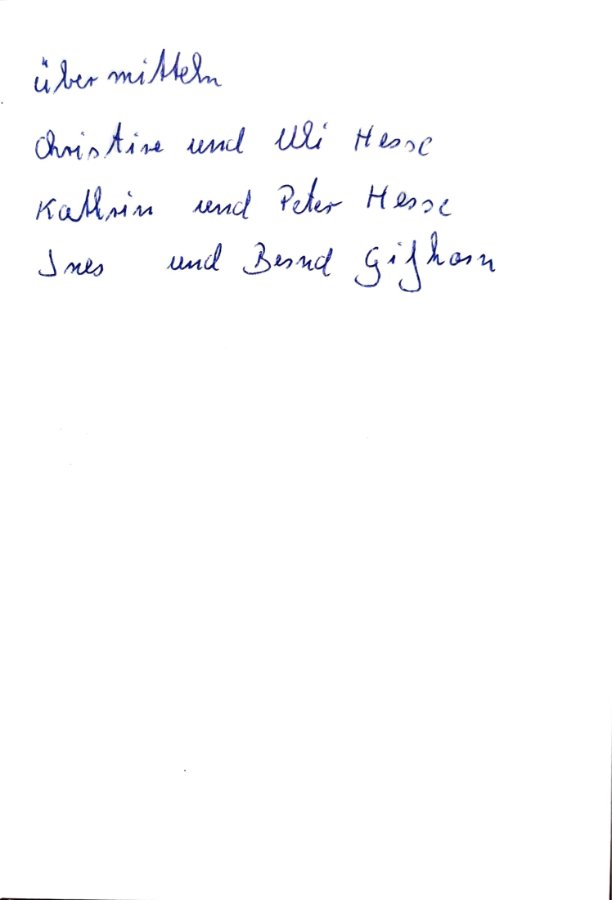 übermitteln
Christine und Uli Hesse
Kathrin und Peter Hesse
Ines und Bernd Gifhorn